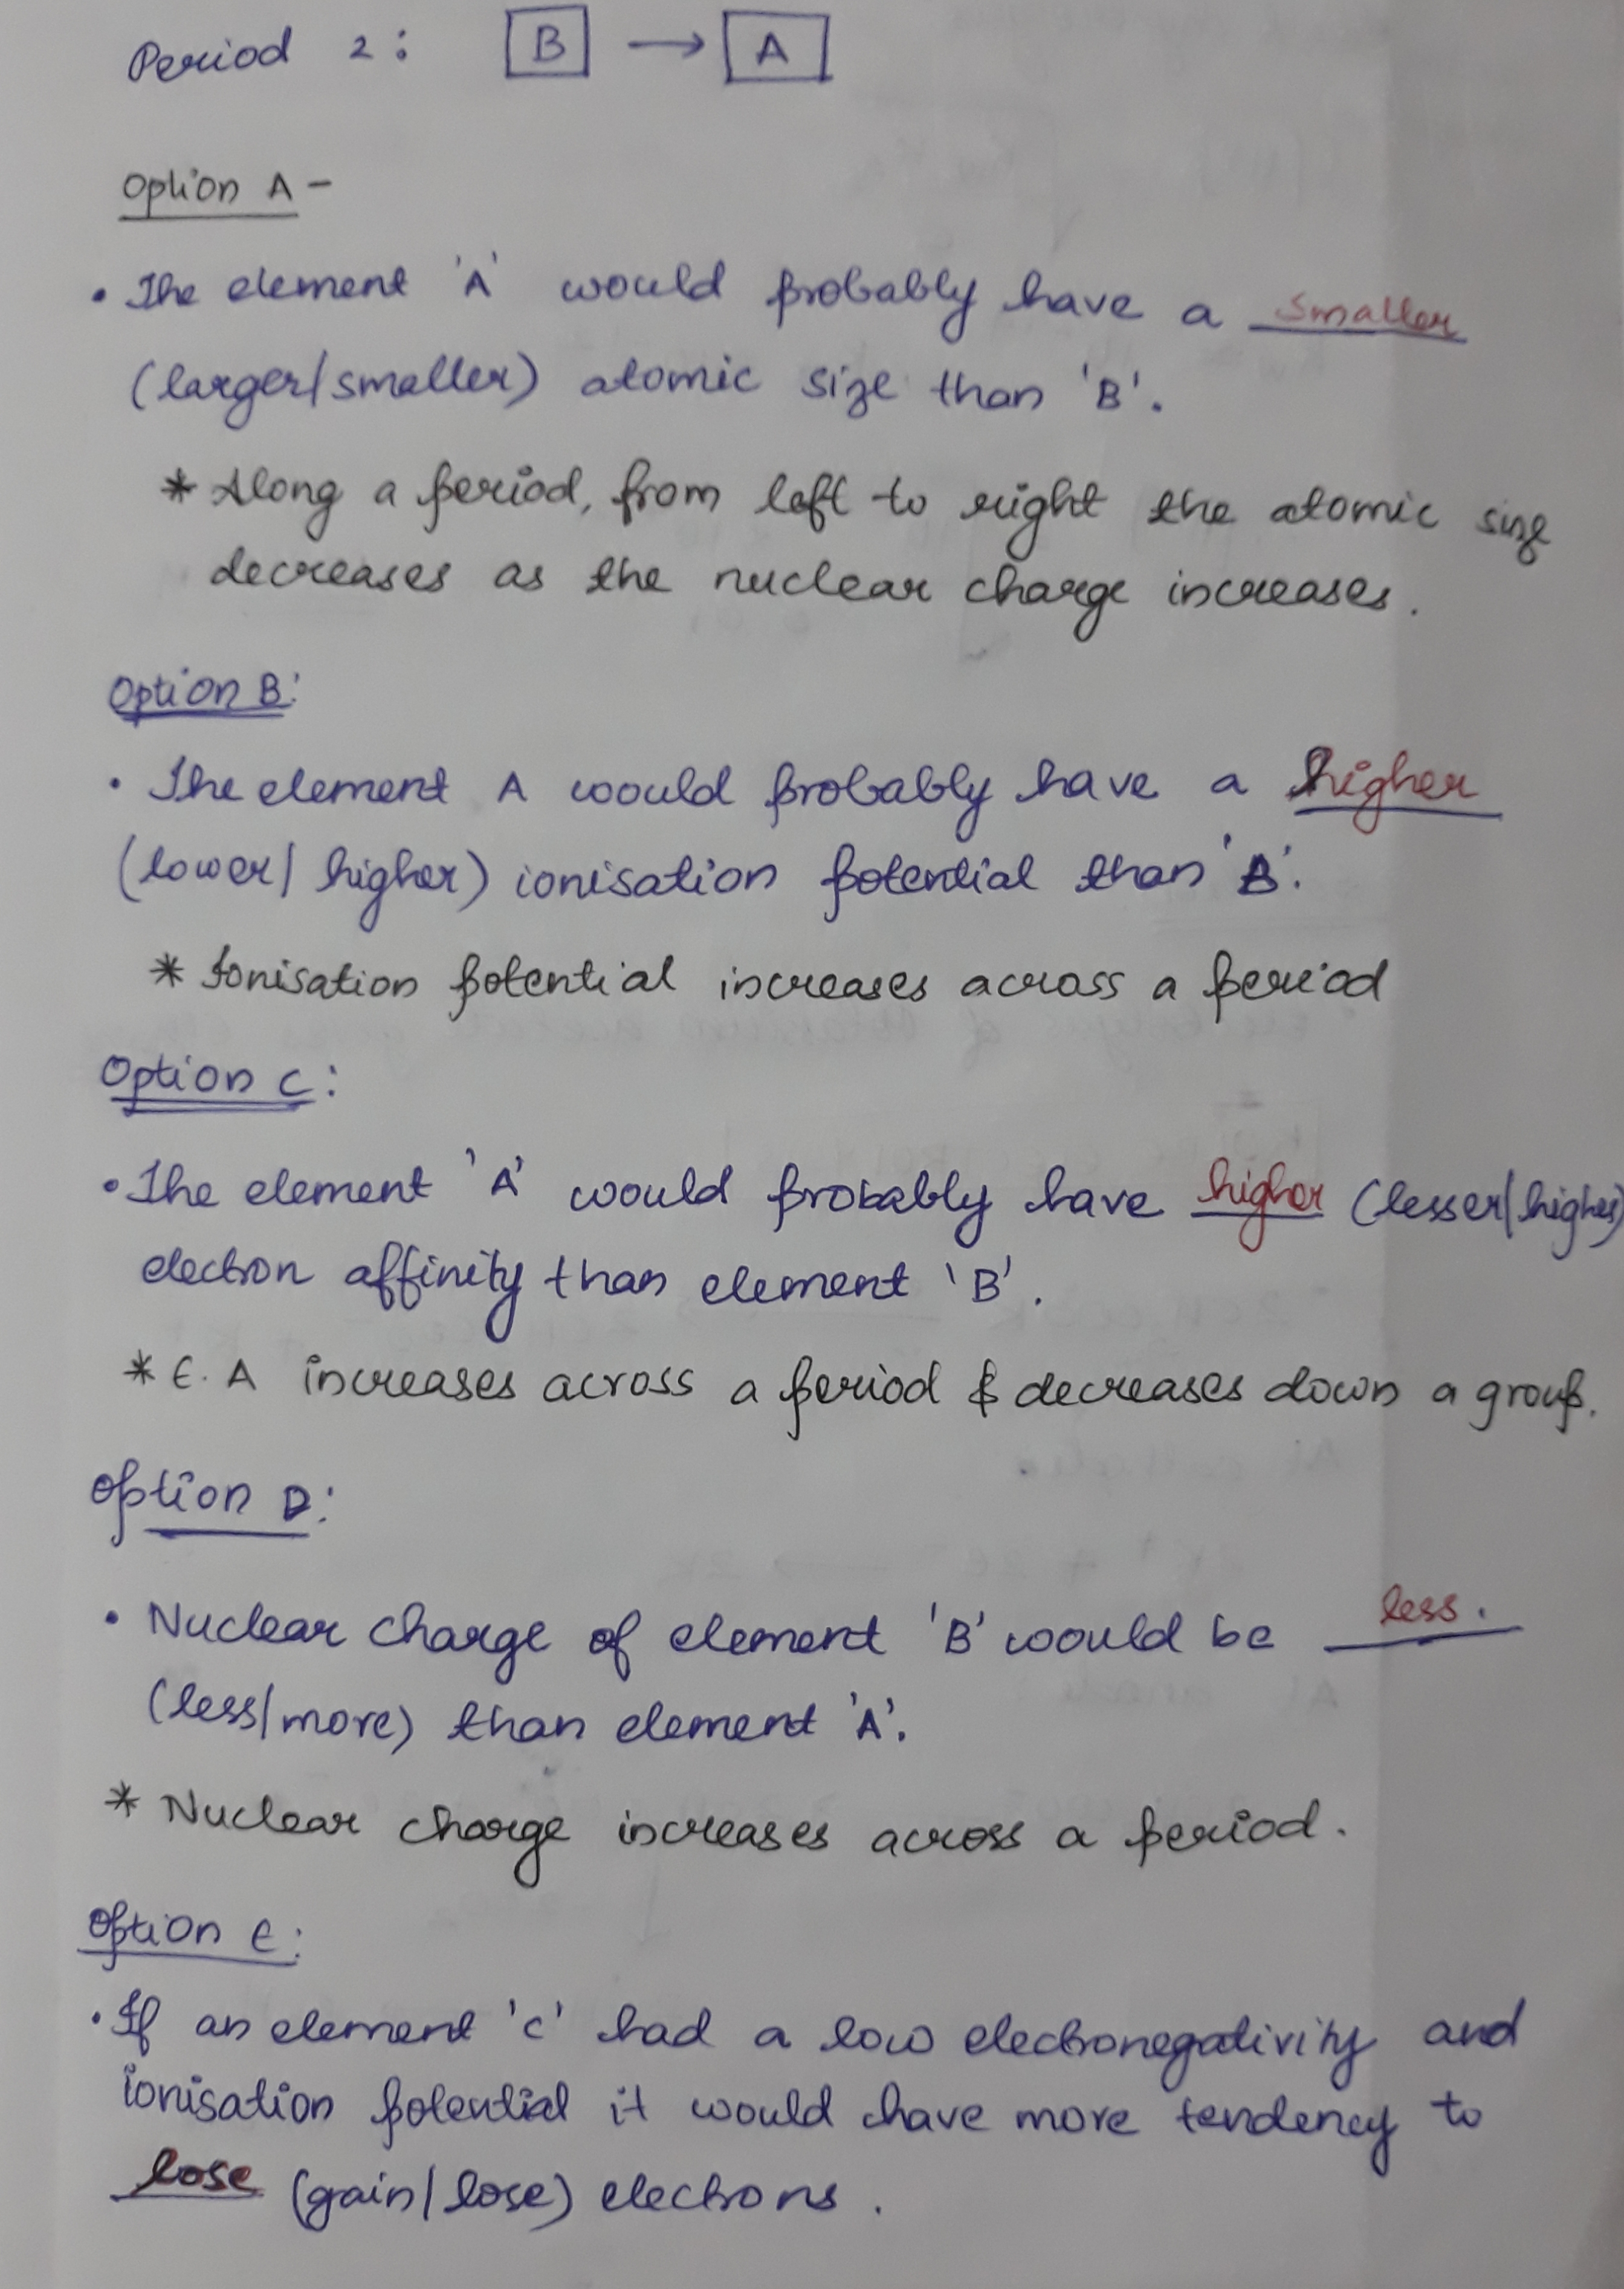 Period 2: B → A
Option A -
• The element 'A' would probably have a smaller
(larger/smaller) atomic size than 'B'.
* Along a period, from left to right the atomic size
decreases as the nuclear charge increases.
Option B:
• The element A would probably have a higher
(lower/ higher) ionisation potential than 'B'.
* Ionisation potential increases across a period
Option C:
• The element 'A' would probably have higher (lesser/higher)
electron affinity than element 'B'.
* E. A increases across a period & decreases down a group.
Option D:
• Nuclear charge of element 'B' would be less.
(less/more) than element 'A'.
* Nuclear charge increases across a period.
Option E:
• If an element 'C' had a low electronegativity and
ionisation potential it would have more tendency to
lose (gain/lose) electrons.